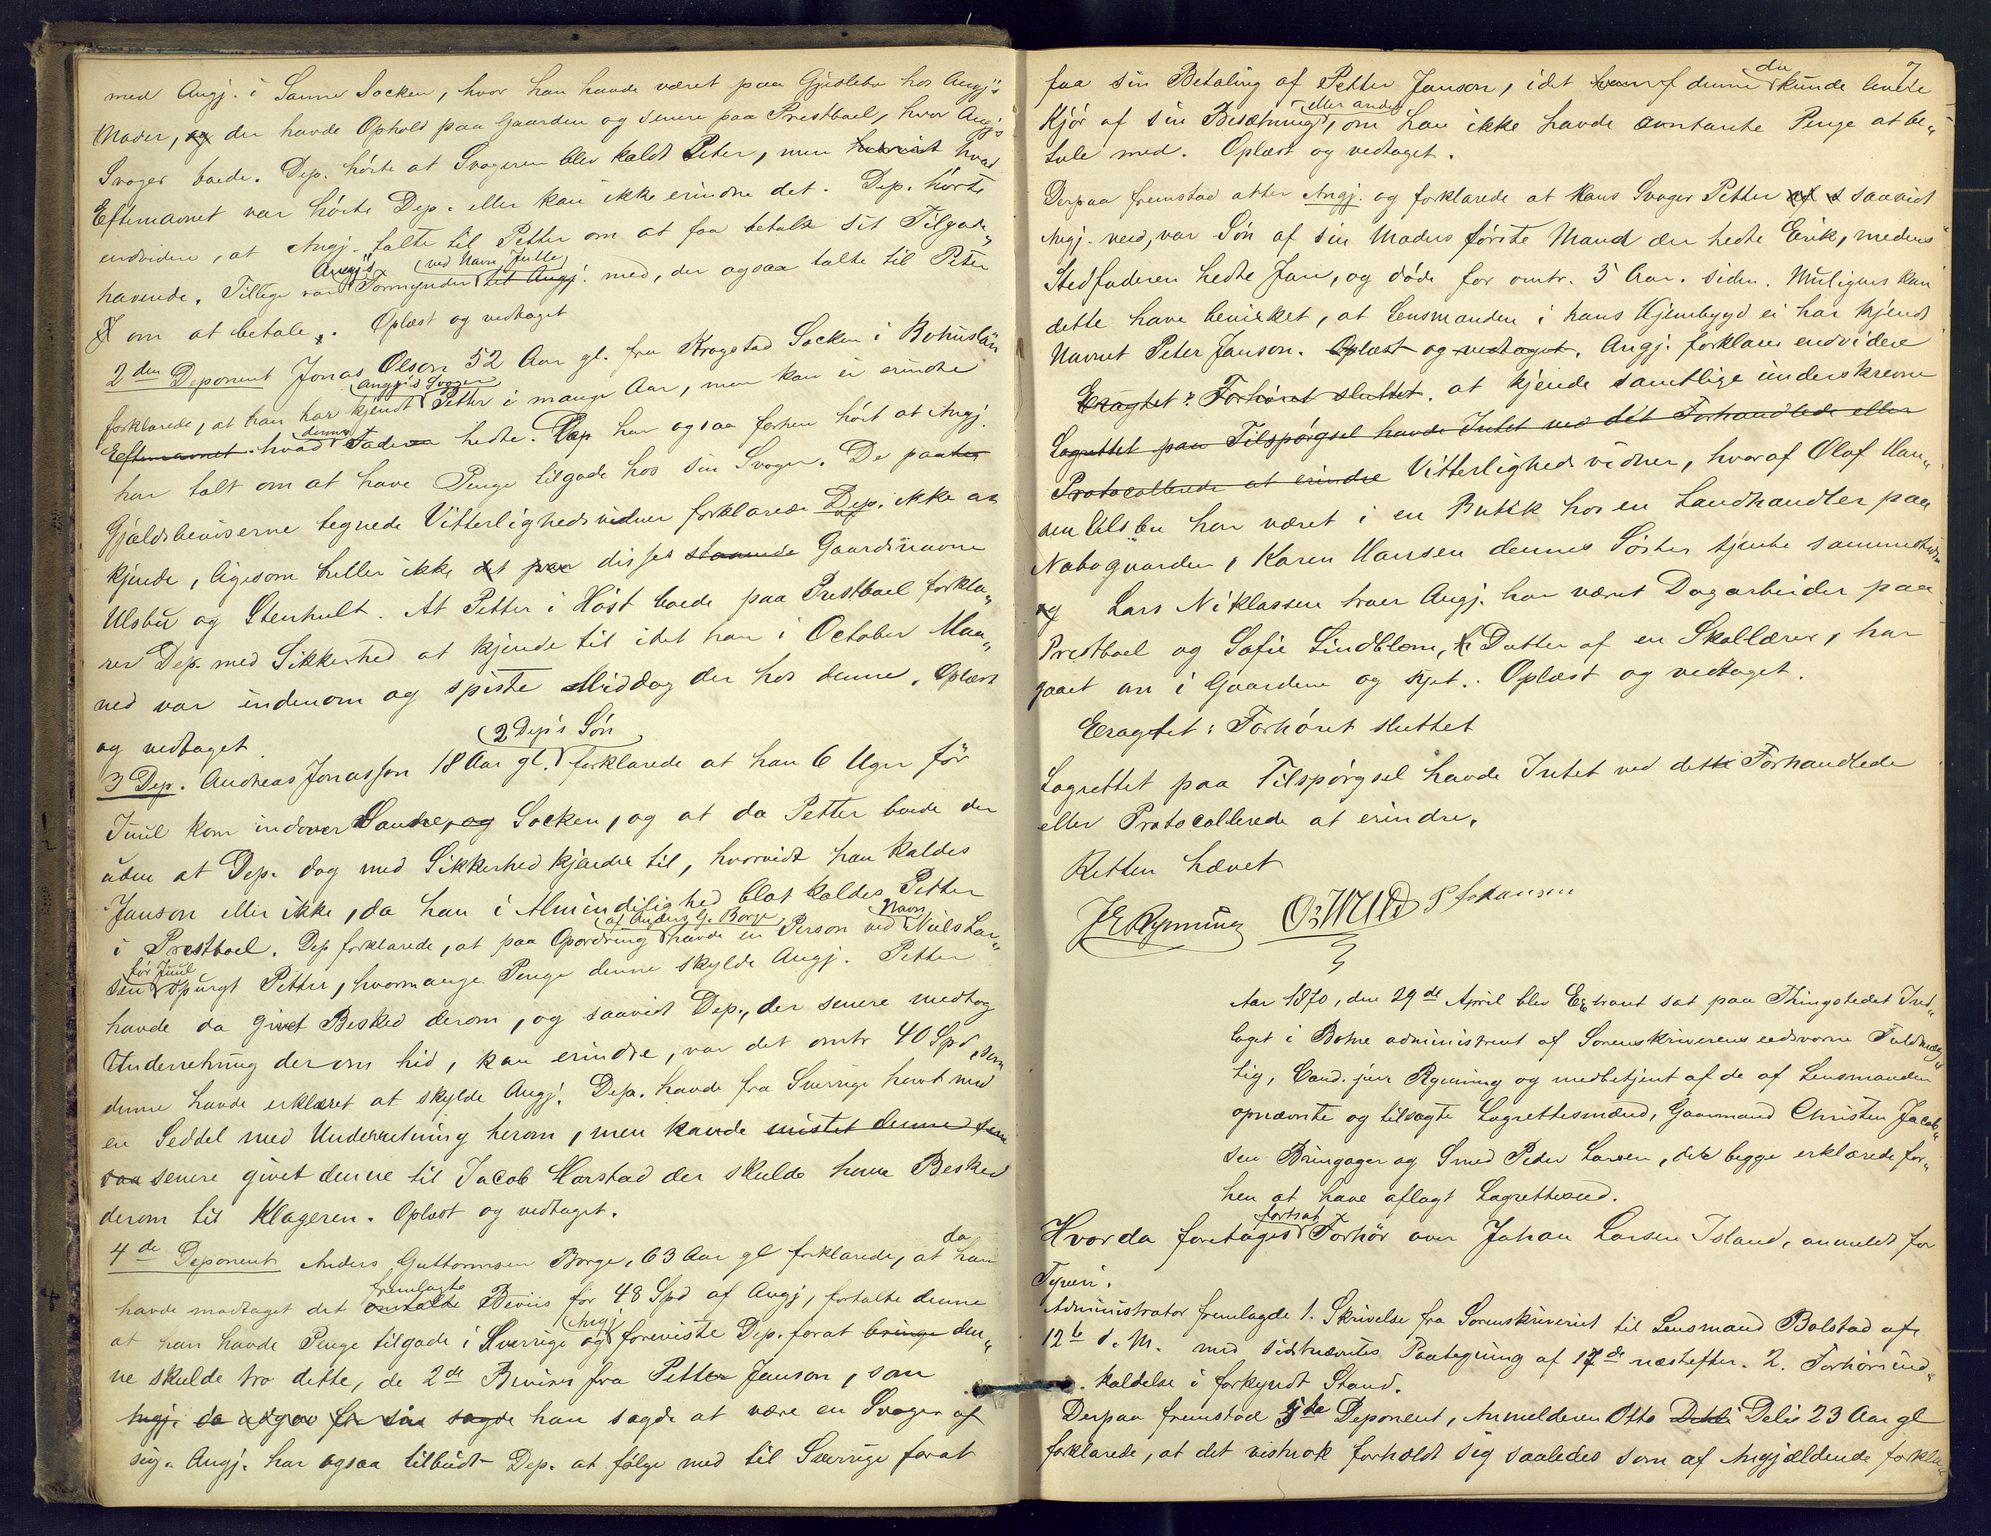 med Angj. i Sanne Socken, hvor han havde været paa Gjæstebu hos Angj's
Moder, og der havde Ophold paa Gaarden og senere paa Prestbøl, hvor Angj's
Svoger boede. Dep. hørte at Svogeren blev kaldt Peter, men hvad
Efternavnet var hørte Dep. eller kan ikke erindre det. Dep. hørte
endvidere, at Angj. talte til Petter om at faa betalt sit Tilgode-
Angj's (ved Navn Julle)
havende. Tillige var Formynder til Angj. med, der ogsaa talte til Peter
om at betale. Oplæst og vedtaget
2den Deponent Jonas Olson 52 Aar gl. fra Krogstad Socken i Bohuslän
Angj's Svoger
forklarede, at han har kjendt Petter i mange Aar, men kan ei erindre
denne
Efternavnet hvad Faderen hedte. Dep har ogsaa forhen hørt at Angj.
har talt om at have Penge tilgode hos sin Svoger. De paa
Gjældsbeviserne tegnede Vitterlighedsvidner forklarede Dep. ikke at
kjende, ligesom heller ikke det paa disses staaende Gaardsnavne
Ulsbu og Stenhult. At Petter i Høst boede paa Prestbøl forkla-
rer Dep. med Sikkerhed at kjende til idet han i October Maa-
ned var indenom og spiste Middag der hos denne. Oplæst
og vedtaget
2 Dep's Søn
3 Dep. Andreas Jonasson 18 Aar gl. forklarede at han 6 Uger før
Juul kom indover Sanne, og Socken, og at da Petter boede der
uden at Dep. dog med Sikkerhed kjender til, hvorvidt han kaldes
Janson eller ikke, da han i Almindelighed blot kaldes Petter
af Anders G. Borge Navn
i Prestbøl. Dep forklarede, at paa Opfordring havde en Person ved Niels Lar-
før Juul
sen spurgt Petter, hvormange Penge denne skylde Angj. Petter
havde da givet Besked derom, og saavidt Dep., der senere medtog
Underretning derom hid, kan erindre, var det omtr 40 Spd, som
denne havde erklæret at skylde Angj. Dep. havde fra Sverige havt med
en Seddel med Underretning herom, men havde mistet denne
senere givet denne til Jacob Harstad der skulde have Besked
derom til Klageren. Oplæst og vedtaget.
da
4de Deponent Anders Guttormsen Borge, 63 Aar gl forklarede, at han
fremlagte
havde modtaget det omtalte Beviis for 48 Spd af Angj, fortalte denne
Angj
at han havde Penge tilgode i Sverrige og foreviste Dep. forat bringe den-
ne skulde tro dette, de 2de Beviser fra Petter Janson, som
Angj. da udgav for sin sagde han sagde at være en Svoger af
sig. Angj. har ogsaa tilbudt Dep. at følge med til Sverrige forat
7
da
faa sin Betaling af Petter Janson, idet denne kunde
eller andet
Kjør af sin Besætning, om han ikke havde contante Penge at be-
tale med. Oplæst og vedtaget.
Derpaa fremstod atter Angj. og forklarede at hans Svoger Petter saavidt
Angj. veed, var Søn af sin Moders første Mand der hedte Eirik, medens
Stedfaderen hedte Jan, og døde for omtr. 5 Aar. siden. Muligens kan
dette have bevirket, at Lensmanden i hans Hjembygd ei har kjendt
Navnet Peter Janson. Oplæst og vedtaget. Angj. forklarer endvidere
Eragtet: Forhøret sluttet. at kjende samtlige underskrevne
Lagrettet paa Tilspørgsel havde Intet ved det Forhandlede eller
Protocollerede at erindre Vitterlighedsvidner, hvoraf Olaf Han-
sen Ulsbu har været i en Butik hos en Landhandler paa
Nabogaarden, Karen Hansen dennes Søster tjente sammesteds
og Lars Niklassen troer Angj. har været Dagarbeider paa
Prestbøl og Sofie Lindblom, Datter af en Skollærer, har
gaaet an i Gaardene og syet. Oplæst og vedtaget.
Eragtet: Forhøret sluttet
Lagrettet paa Tilspørgsel havde Intet ved dette Forhandlede
eller Protocollerede at erindre.
Retten hævet
Rynning O. Wuld P Johansen
Aar 1870, den 29de April blev Extraret sat paa Thingstedet Ind-
laget i Botne administreret af Sorenskriverens eedsvorne Fuldmæg-
tig, Cand. jur Rynning og medbetjent af de af Lensmanden
opnævnte og tilsagte Lagrettesmænd, Gaarmand Christen Jacob-
sen Bringager og Smed Peder Larsen, der begge erklærede for-
hen at have aflagt Lagretteseed.
fortsat
Hvorda foretages Forhør over Johan Larsen Island, anmeldt for
Tyveri.
Administrator fremlagde 1. Skrivelse fra Sorenskriveriet til Lensmand Bolstad af
12te d. M. med sidstnævntes Paategning af 17de næstefter. 2. Forhørsind-
kaldelse i forkyndt Stand.
Derpaa fremstod 5te Deponent, Anmelderen Otto Delis 23 Aar gl
forklarede, at det vistnok forholdt sig saaledes som af Angjældende forkla-